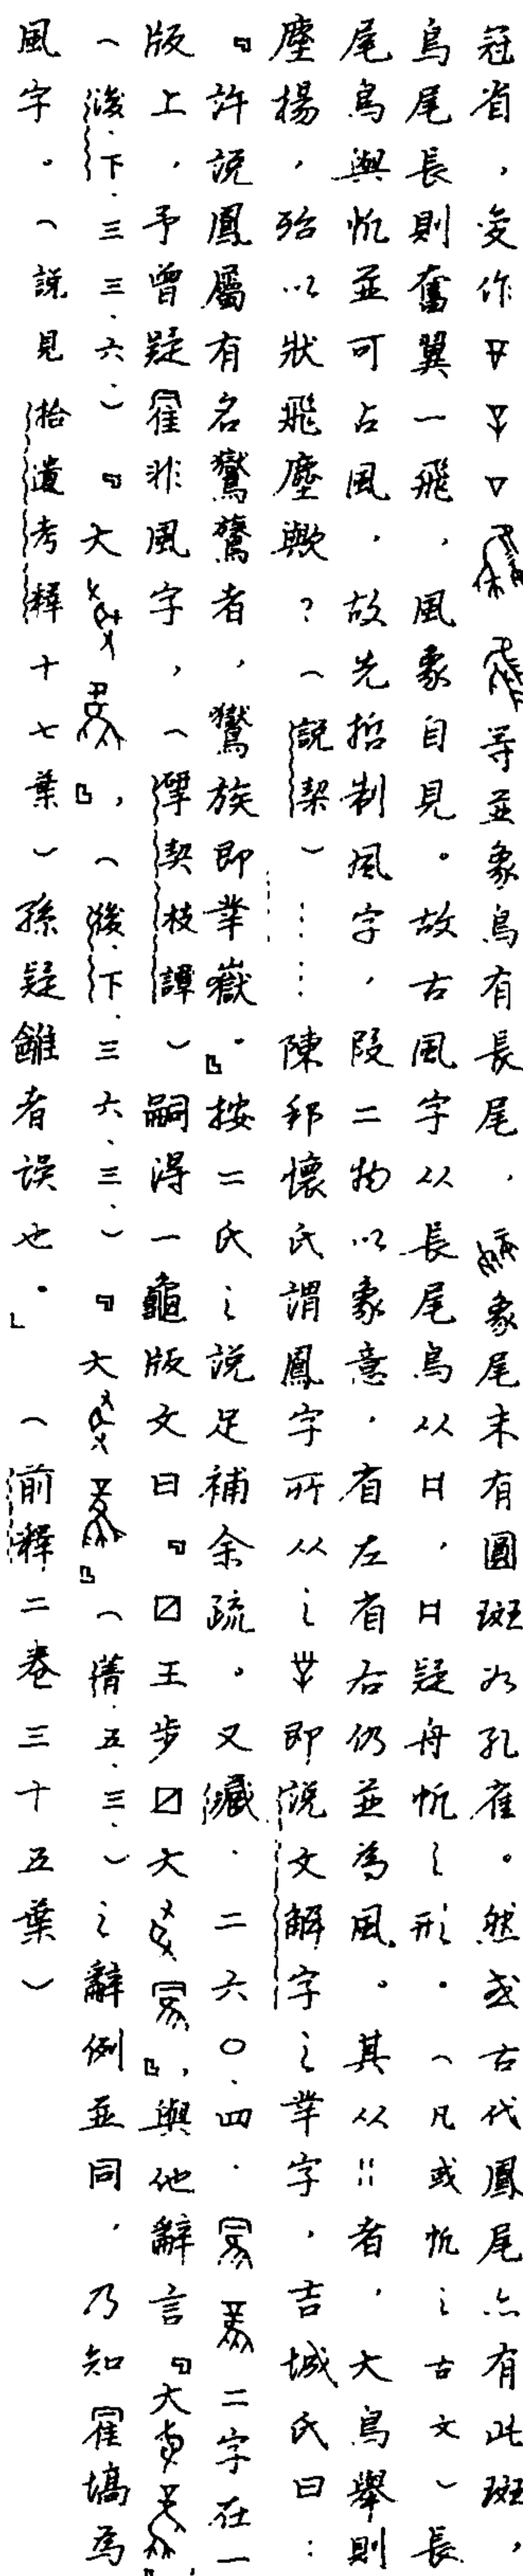 冠省，变作等並象鳥有長尾，象尾末有圓斑如孔雀。然或古代鳳尾亦有此斑，
鳥尾長則奮翼一飛，風象自見。故古風字从長尾鳥从日，日疑舟帆之形。（凡或帆之古文）長
尾鳥與帆並可占風，故先哲制風字，段二物以象意，省左省右仍並為風。其从者，大鳥舉則
塵揚，殆以狀飛塵歟？（說契）……陳邦懷氏謂鳳字所从之即說文解字之丵字，吉城氏曰：
『許說鳳屬有名鸑鷟者，鸑族即丵嶽。』按二氏之說足補余疏。又藏·二六〇·四·二字在一
版上，予曾疑非風字，（揅契枝譚）嗣得一龜版文曰『☒王步☒大』，與他辭言『大
（後·下·三三·六·）『大』，（後·下·三六·三·）『大』（菁·五·三·）之辭例並同，乃知塙為
風字。（說見拾遺考釋十七葉）孫疑雝者誤也。」（前釋二卷三十五葉）